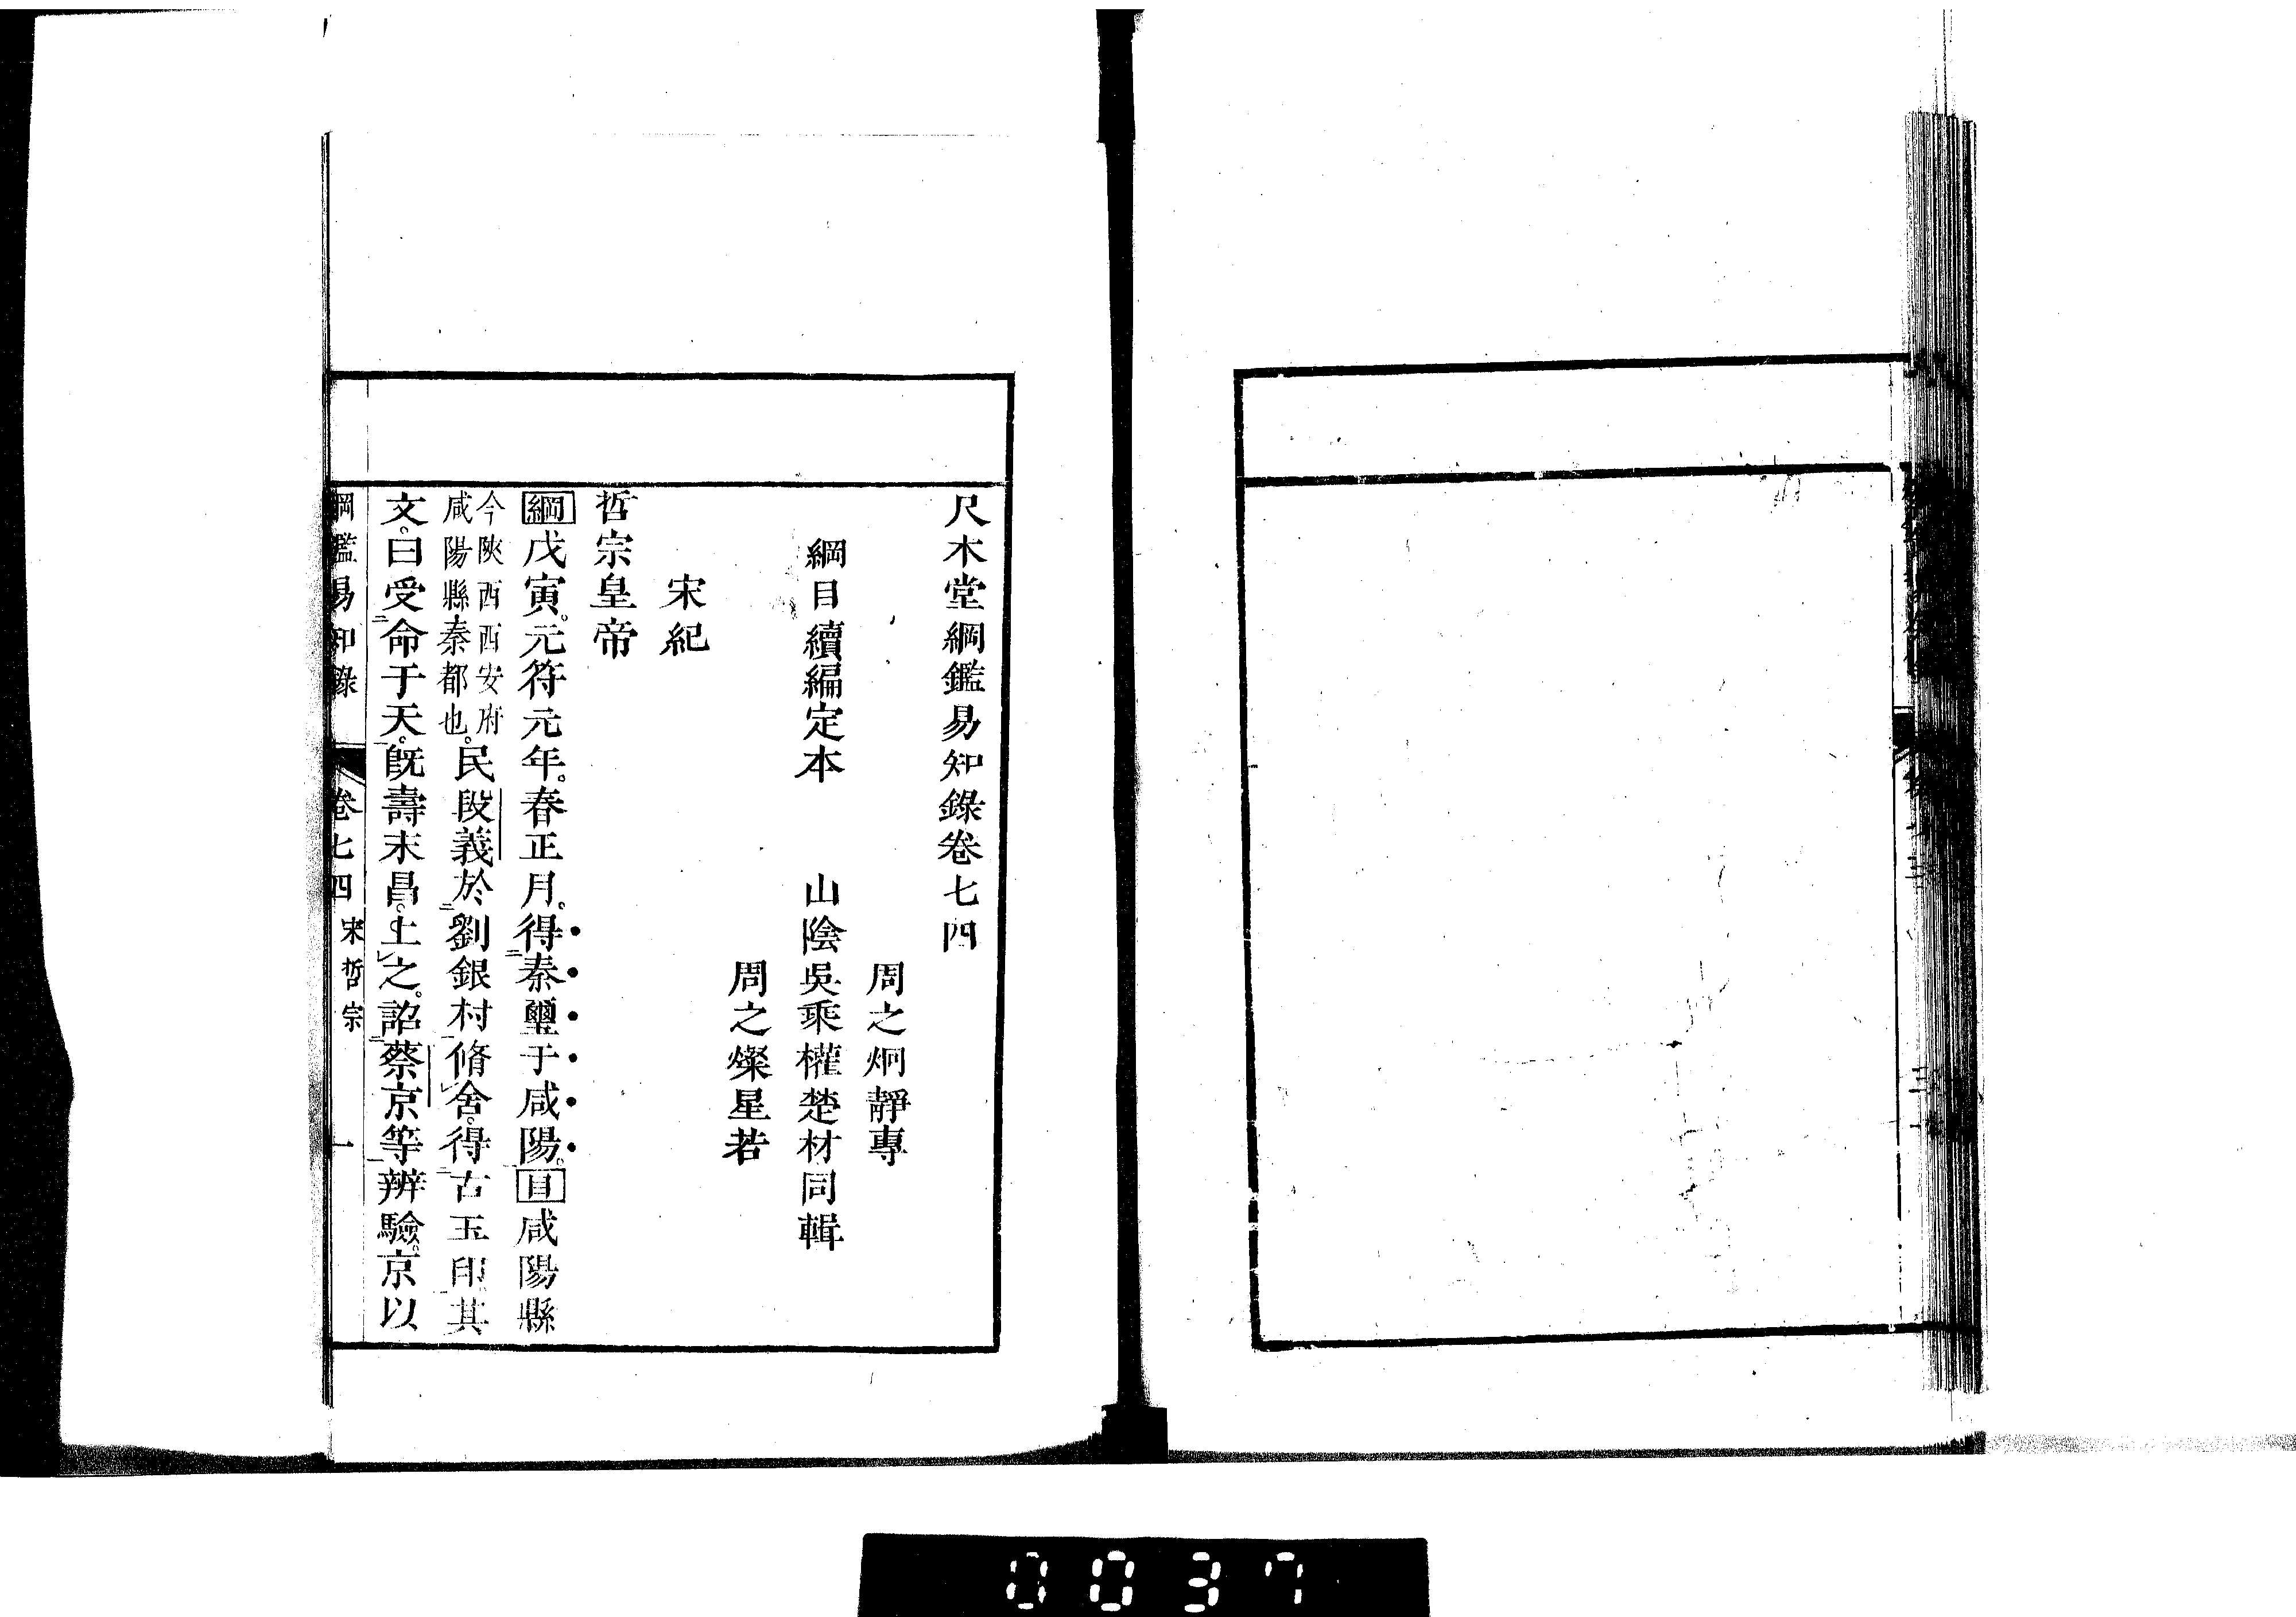 尺木堂綱鑑易知錄卷七四
周之炯靜專
綱目續編定本　山陰吳乘權楚材同輯
周之燦星若
宋紀
哲宗皇帝
綱戊寅。元符元年。春正月。得秦璽于咸陽。目咸陽縣
今陝西西安府
咸陽縣秦都也。
民段義於劉銀村脩舍。得古玉印其
文。曰受命于天。旣壽末昌。上之。詔蔡京等辨驗。京以
綱鑑易知錄　卷七四　宋哲宗　一
0037